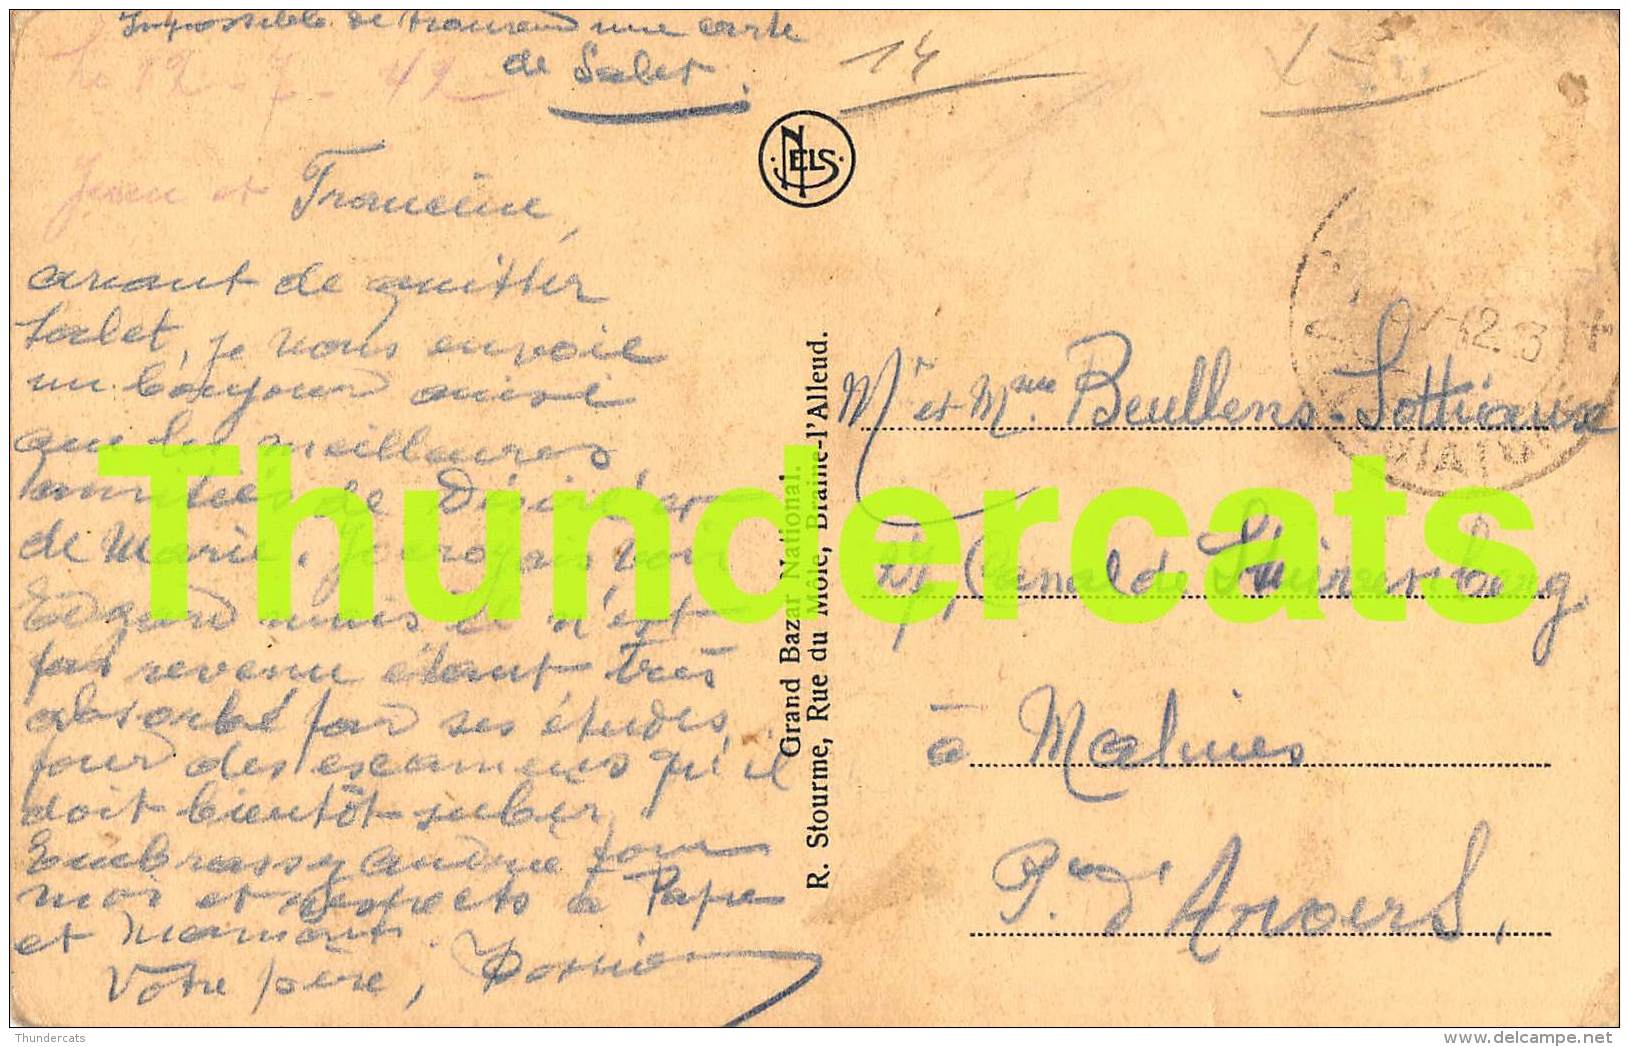 Impossible de trouver une carte
de Salet.
Le 12-7-42
14
Jean et Francine,
avant de quitter
Salet, je vous envoie
un bonjour ainsi
que les meilleures
amitiés de Désiré et
de Marie. Je croyais voir
Edgard mais il n'est
pas revenu étant très
absorbé par ses études,
pour des examens qu'il
doit bientôt subir.
Embrassez Andrée pour
moi et respects à Papa
et Maman.
Votre père,
NELS
Grand Bazar National.
R. Stourme, Rue du Môle, Braine-l'Alleud.
Mr et Mme Beullens-Sottiaux
27, Canal de Stuivenberg
à Malines
P. d'Anvers.
Thundercats
Thundercats
delcampe.net